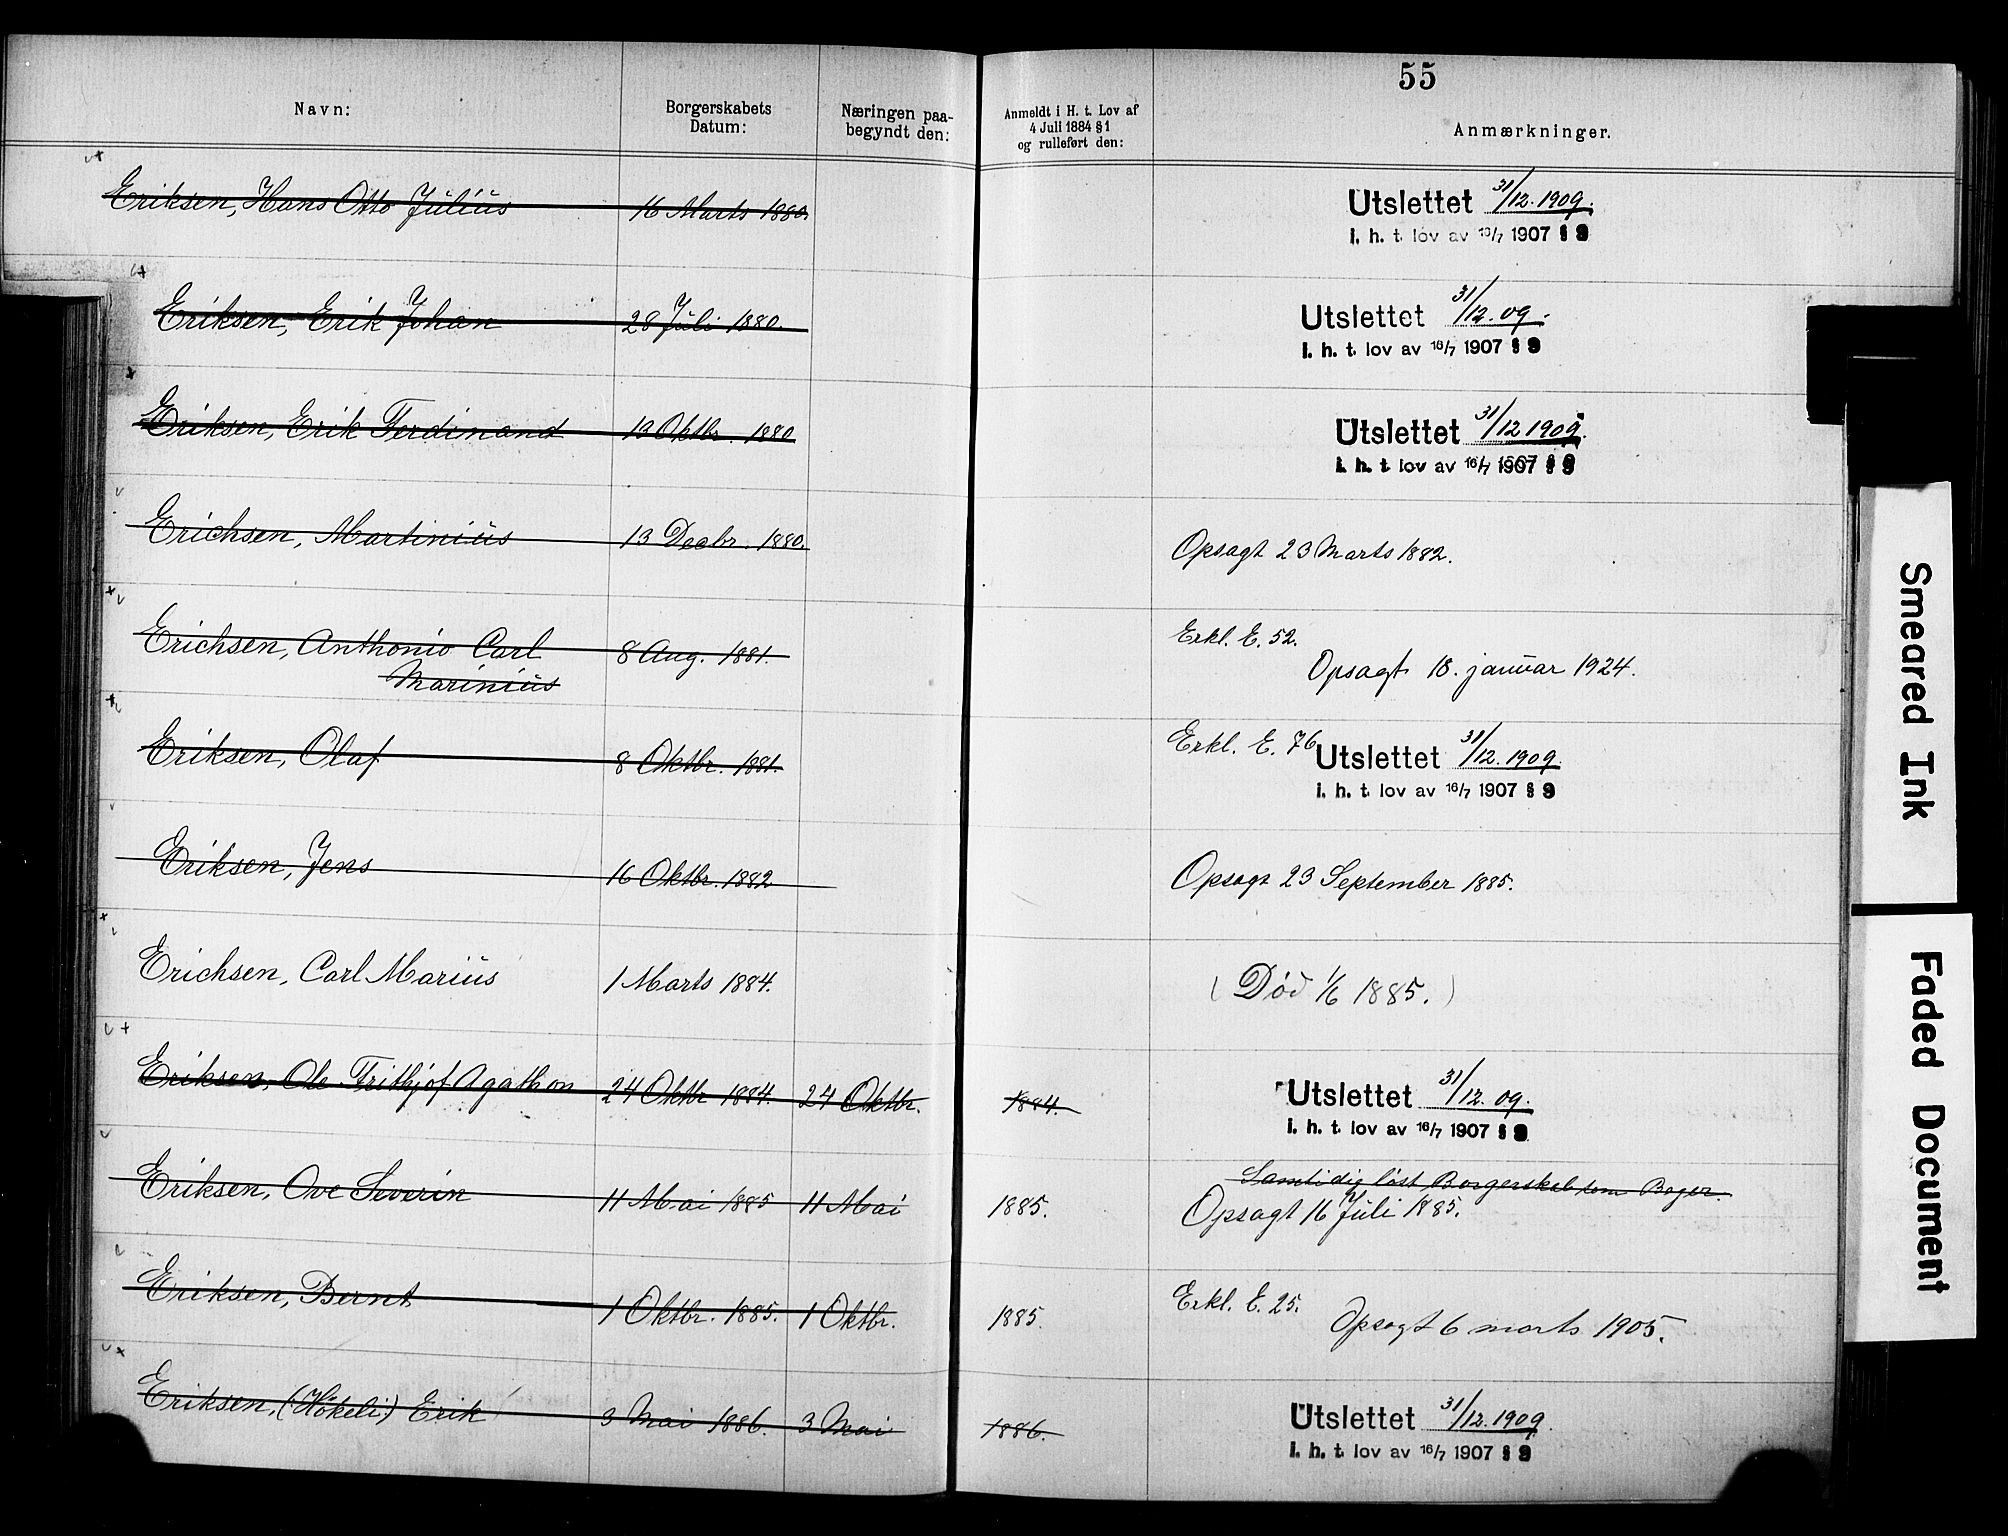 55
Navn:
Borgerskabets
Datum:
Næringen paa-
begyndt den:
Anmeldt i H. t. Lov af
4 Juli 1884 § 1
og rulleført den:
Anmærkninger.
Eriksen, Hans Otto Julius 16 Marts 1880. Utslettet 31/12. 1909.
i. h. t. lov av 16/7 1907 § 9
Eriksen, Erik Johan 28 Juli 1880. Utslettet 31/12. 09.
i. h. t. lov av 16/7 1907 § 9
Eriksen, Erik Ferdinand 19 Oktbr. 1880 Utslettet 31/12 1909.
i. h. t. lov av 16/7 1907 § 9
Erichsen, Martinius 13 Decbr. 1880. Opsagt 23 Marts 1882.
Erkl. E. 52.
Erichsen, Anthonio Carl 8 Aug. 1881. Opsagt 18. januar 1924.
Marinius
Eriksen, Olaf 8 Oktbr. 1881. Erkl. E. 76 Utslettet 31/12. 1909.
i. h. t. lov av 16/7 1907 § 9
Eriksen, Jens 16 Oktbr. 1882 Opsagt 23 September 1885.
Erichsen, Carl Marius 1 Marts 1884. (Død 1/6 1885.)
Eriksen, Ole Frithjof Agathon 24 Oktbr 1884. 24 Oktbr. 1884. Utslettet 31/12. 09.
i. h. t. lov av 16/7 1907 § 9
Samtidig løst Borgerskab som Bager.
Eriksen, Ove Severin 11 Mai 1885 11 Mai 1885. Opsagt 16 Juli 1885.
Eriksen, Bernt 1 Oktbr. 1885. 1 Oktbr. 1885. Erkl. E. 25.
Opsagt 6 marts 1905.
Eriksen, (Høkeli) Erik 3 Mai 1886. 3 Mai 1886. Utslettet 31/12. 1909
i. h. t. lov av 16/7 1907 § 9
Smeared Ink
Faded Document